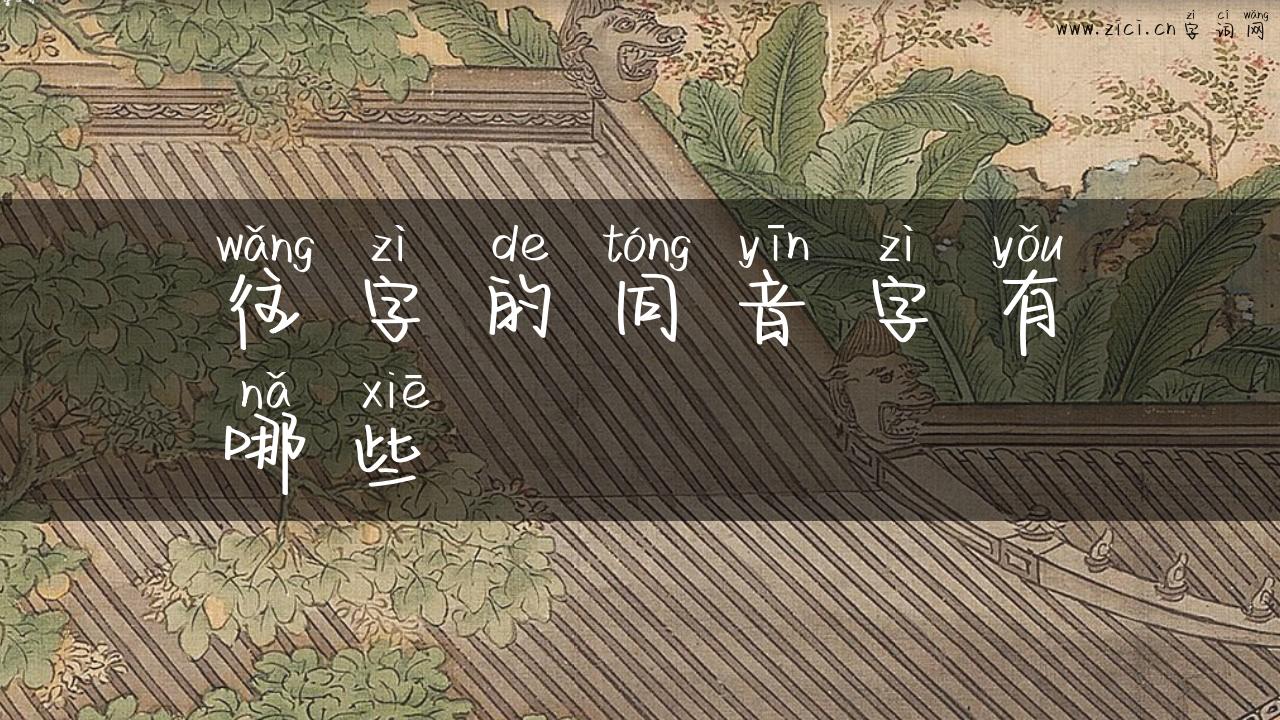 zì cí wǎng
www.zici.cn 字词网
wǎng zì de tóng yīn zì yǒu
往字的同音字有
nǎ xiē
哪些